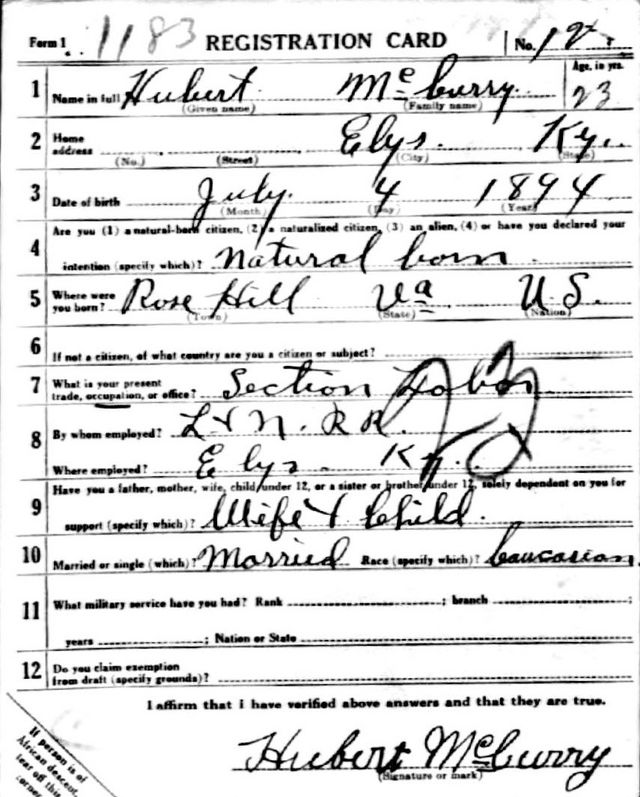 Form 1 1183 REGISTRATION CARD No. 12
1 Name in full Hubert McCurry Age, in yrs. 23
(Given name) (Family name)
2 Home address Elys. Ky.
(No.) (Street) (City) (State)
3 Date of birth July 4 1894
(Month) (Day) (Year)
4 Are you (1) a natural-born citizen, (2) a naturalized citizen, (3) an alien, (4) or have you declared your
intention (specify which)? Natural born
5 Where were you born? Rose Hill Va U.S.
(Town) (State) (Nation)
6 If not a citizen, of what country are you a citizen or subject?
7 What is your present trade, occupation, or office? Section Labor
8 By whom employed? L & N. R R.
Where employed? Elys. Ky.
9 Have you a father, mother, wife, child under 12, or a sister or brother under 12, solely dependent on you for
support (specify which)? Wife & Child.
10 Married or single (which)? Married Race (specify which)? Caucasian
11 What military service have you had? Rank ; branch ;
years ; Nation or State
12 Do you claim exemption from draft (specify grounds)?
I affirm that I have verified above answers and that they are true.
Hubert McCurry
(Signature or mark)
If person is of
African descent,
tear off this
corner